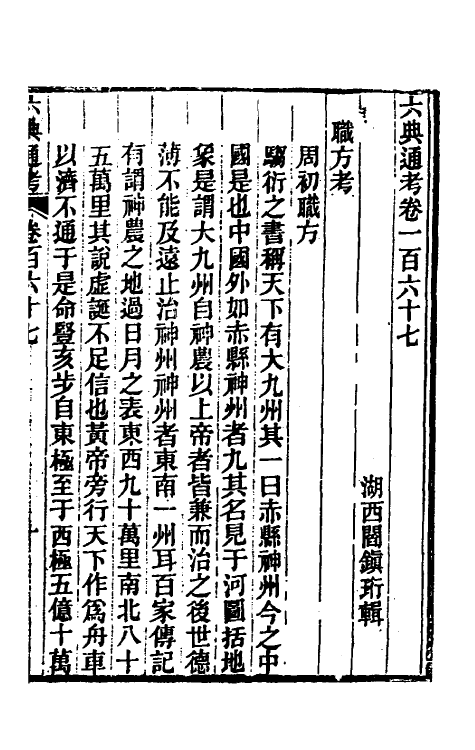 六典通考卷一百六十七
湖西閻鎮珩輯
職方考
周初職方
騶衍之書稱天下有大九州其一曰赤縣神州今之中
國是也中國外如赤縣神州者九其名見于河圖括地
象是謂大九州自神農以上帝者皆兼而治之後世德
薄不能及遠止治神州神州者東南一州耳百家傳記
有謂神農之地過日月之表東西九十萬里南北八十
五萬里其說虛誕不足信也黃帝旁行天下作爲舟車
以濟不通于是命豎亥步自東極至于西極五億十萬
六典通考 卷百六十七